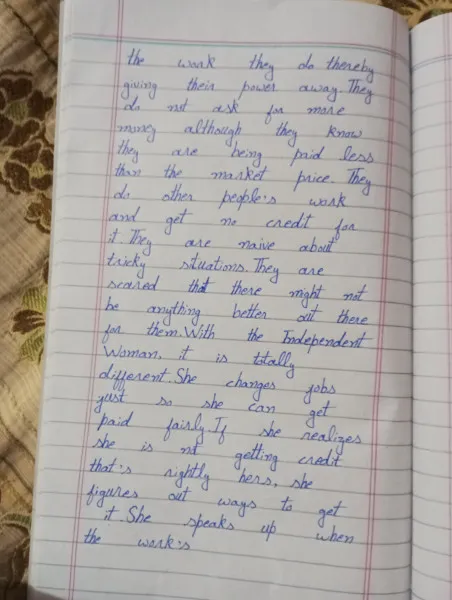 the work they do thereby
giving their power away. They
do not ask for more
money although they know
they are being paid less
than the market price. They
do other people's work
and get no credit for
it. They are naive about
tricky situations. They are
scared that there might not
be anything better out there
for them. With the Independent
Woman, it is totally
different. She changes jobs
just so she can get
paid fairly. If she realizes
she is not getting credit
that's rightly hers, she
figures out ways to get
it. She speaks up when
the work's